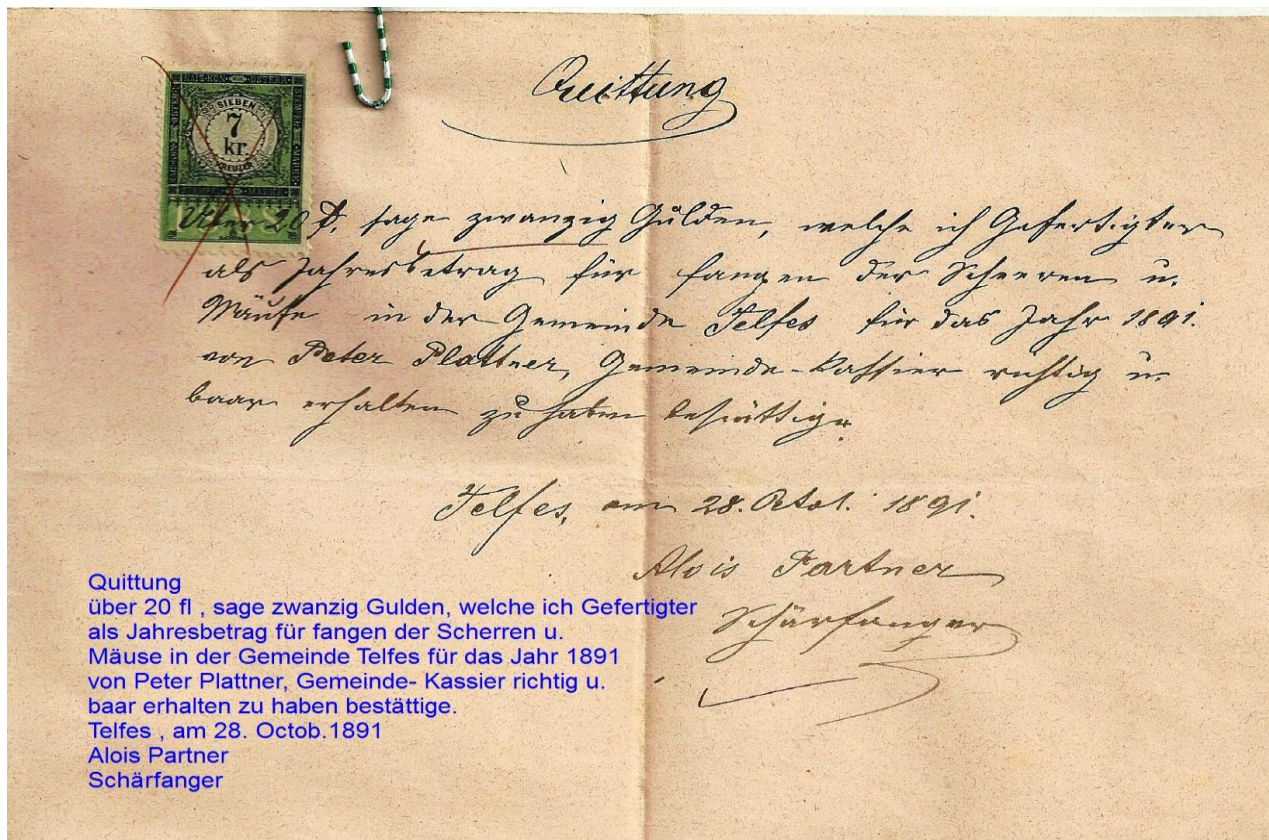 KAIS·KÖN· ·ÖSTERR·
STEMPEL MARKE
SIEBEN
7
kr.
KREUZER
Quittung
Über 20 f. sage zwanzig Gulden, welche ich Gefertigter
als Jahresbetrag für fangen der Scheeren u.
Mäuse in der Gemeinde Telfes für das Jahr 1891.
von Peter Plattner, Gemeinde-Kassier richtig u.
baar erhalten zu haben bestättige.
Telfes, am 28. Octob. 1891.
Alois Partner
Schärfanger
Quittung
über 20 fl , sage zwanzig Gulden, welche ich Gefertigter
als Jahresbetrag für fangen der Scherren u.
Mäuse in der Gemeinde Telfes für das Jahr 1891
von Peter Plattner, Gemeinde- Kassier richtig u.
baar erhalten zu haben bestättige.
Telfes , am 28. Octob.1891
Alois Partner
Schärfanger